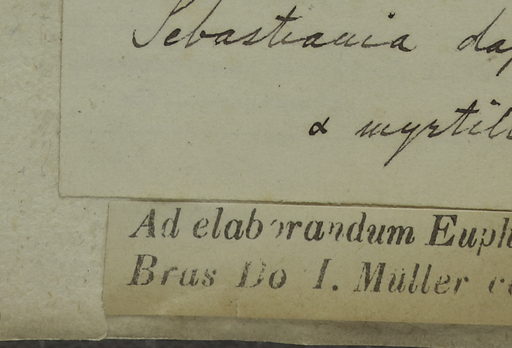 Sebastiania da
α myrtil
Ad elaborandum Euph
Bras Do I. Müller c